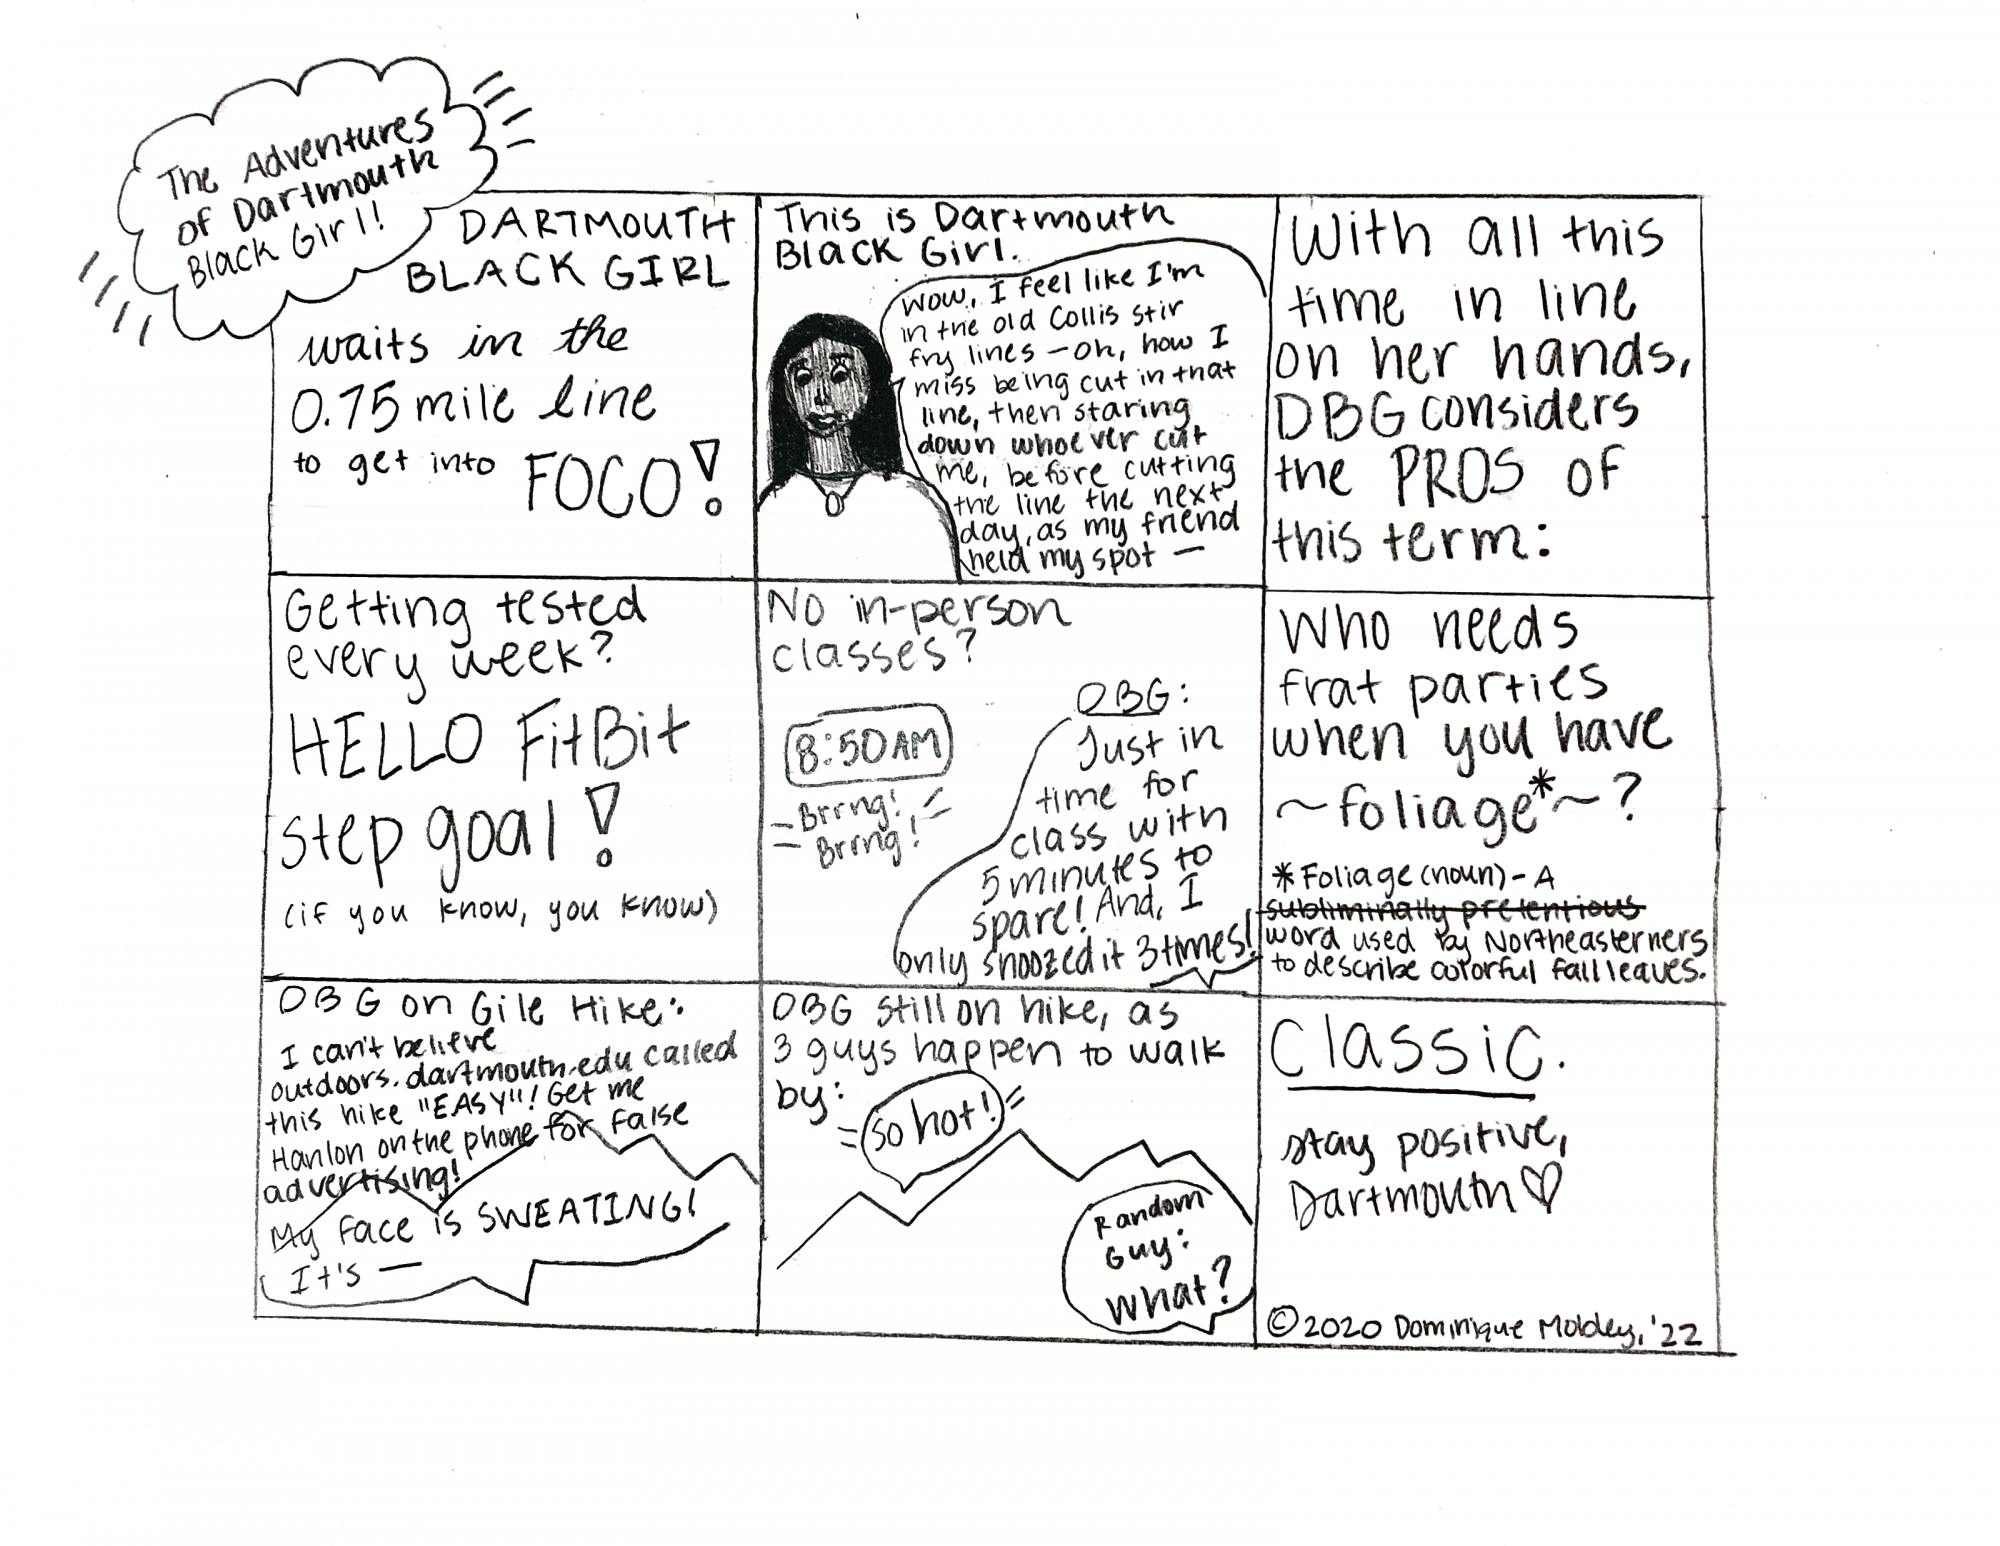 The Adventures
of Dartmouth
Black Girl!
DARTMOUTH
BLACK GIRL
waits in the
0.75 mile line
to get into FOCO!
This is Dartmouth
Black Girl.
Wow, I feel like I'm
in the old Collis stir
fry lines — oh, how I
miss being cut in that
line, then staring
down whoever cut
me, before cutting
the line the next
day, as my friend
held my spot —
With all this
time in line
on her hands,
DBG considers
the PROS of
this term:
Getting tested
every week?
HELLO FitBit
step goal!
(if you know, you know)
No in-person
classes?
8:50AM
Brrng!
Brrng!
DBG:
Just in
time for
class with
5 minutes to
spare! And, I
only snoozed it 3 times!
Who needs
frat parties
when you have
~foliage*~?
*Foliage (noun) - A
subliminally pretentious
word used by Northeasterners
to describe colorful fall leaves.
DBG on Gile Hike:
I can't believe
outdoors.dartmouth.edu called
this hike "EASY"! Get me
Hanlon on the phone for false
advertising!
My face is SWEATING!
It's —
DBG still on hike, as
3 guys happen to walk
by:
so hot!
Random
Guy:
What?
Classic.
stay positive,
Dartmouth ♡
©2020 Dominique Mobley, '22